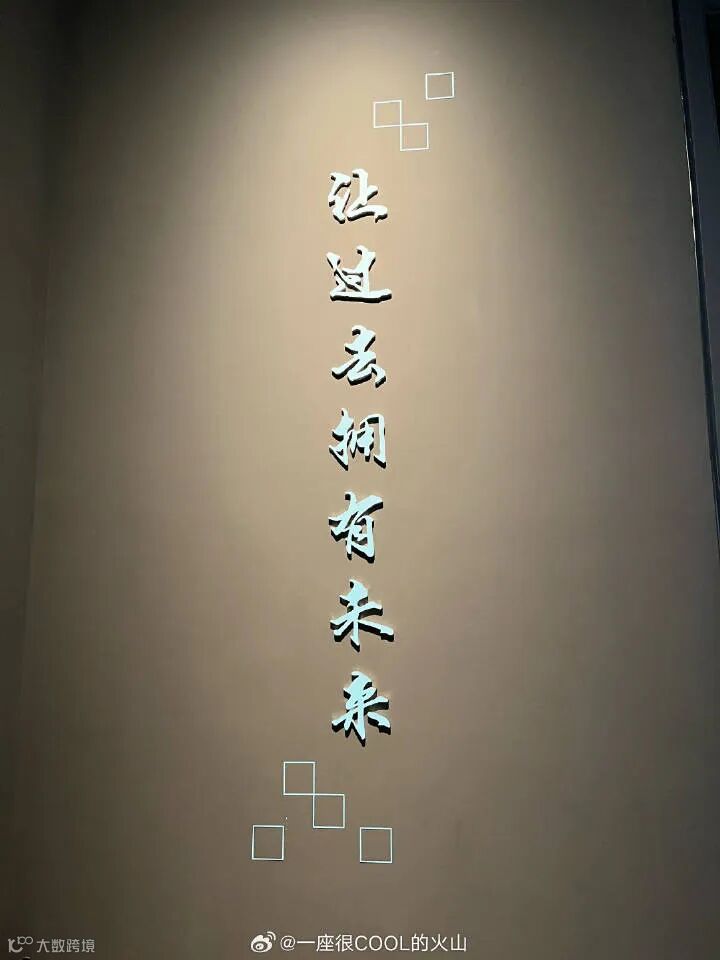 让过去拥有未来
大数跨境
@一座很COOL的火山